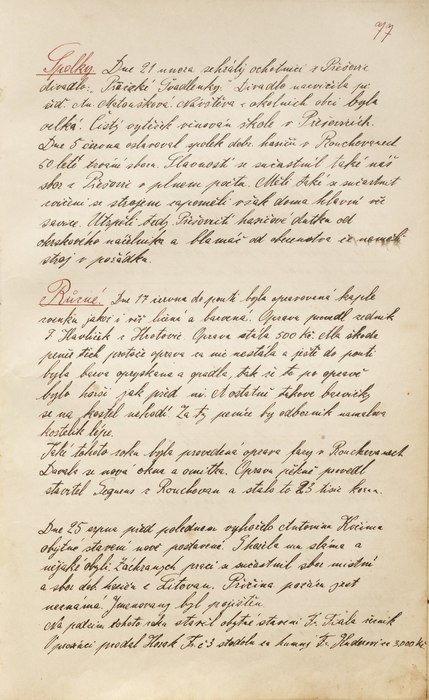 77
Spolky. Dne 21 února sehráli ochotníci v Přešovi
divadlo: Pražské Švadlenky. Divadlo nacvičila pí
řid. An. Matoušková. Návštěva z okolních obcí byla
velká. Čistý výtěžek věnován škole v Přešovicích.
Dne 5 června oslavoval spolek dobr. hasičů v Rouchovanech
50 leté trvání sboru. Slavnosti se súčastnil také náš
sbor z Přešovic v plném počtu. Měli také se súčastnit
cvičení se strojem zapoměli však doma hlavní vč
savice. Utrpěli tedy Přešovičtí hasičové důtku od
okrskového náčelníka a blamáž od obecenstva že neměli
stroj v pořádku.
Různé. Dne 17 června do pouti byla opravována kaple
zvenku jakož i věž líčená a barvená. Opravu provedl zedník
F Havlíček z Hrotovic. Oprava stála 500 Kč. Ale škoda
peněz těch protože oprava za nic nestála a ještě do pouti
byla barva opryskána a opadla, tak že to po opravě
bylo horší jak před ní. A ostatně takové barvičky
se na kostel nehodí. Za ty peníze by odborník namaloval
kostelík lépe.
Také tohoto roku byla provedená oprava fary v Rouchovanech
Dávala se nová okna a omítka. Opravu pěkně provedl
stavitel z Rouchovan a stálo to 23 tisíc korun.
Dne 25 srpna před polednem vyhořelo Antonínu
obytné stavení nově postavené. Shořela mu sláma a
nějaké obylí. Záchranných prací se súčastnil sbor místní
a sbor dob. hasičů z Litovan. Příčina požáru jest
neznáma. Jmenovaný byl pojištěn.
Na podzim tohoto roku stavěl obytné stavení Fr. Fiala řezník
Upozorci prodal Horák Fr. č 3 stodolu za humny Fr. za 3.000 Kč